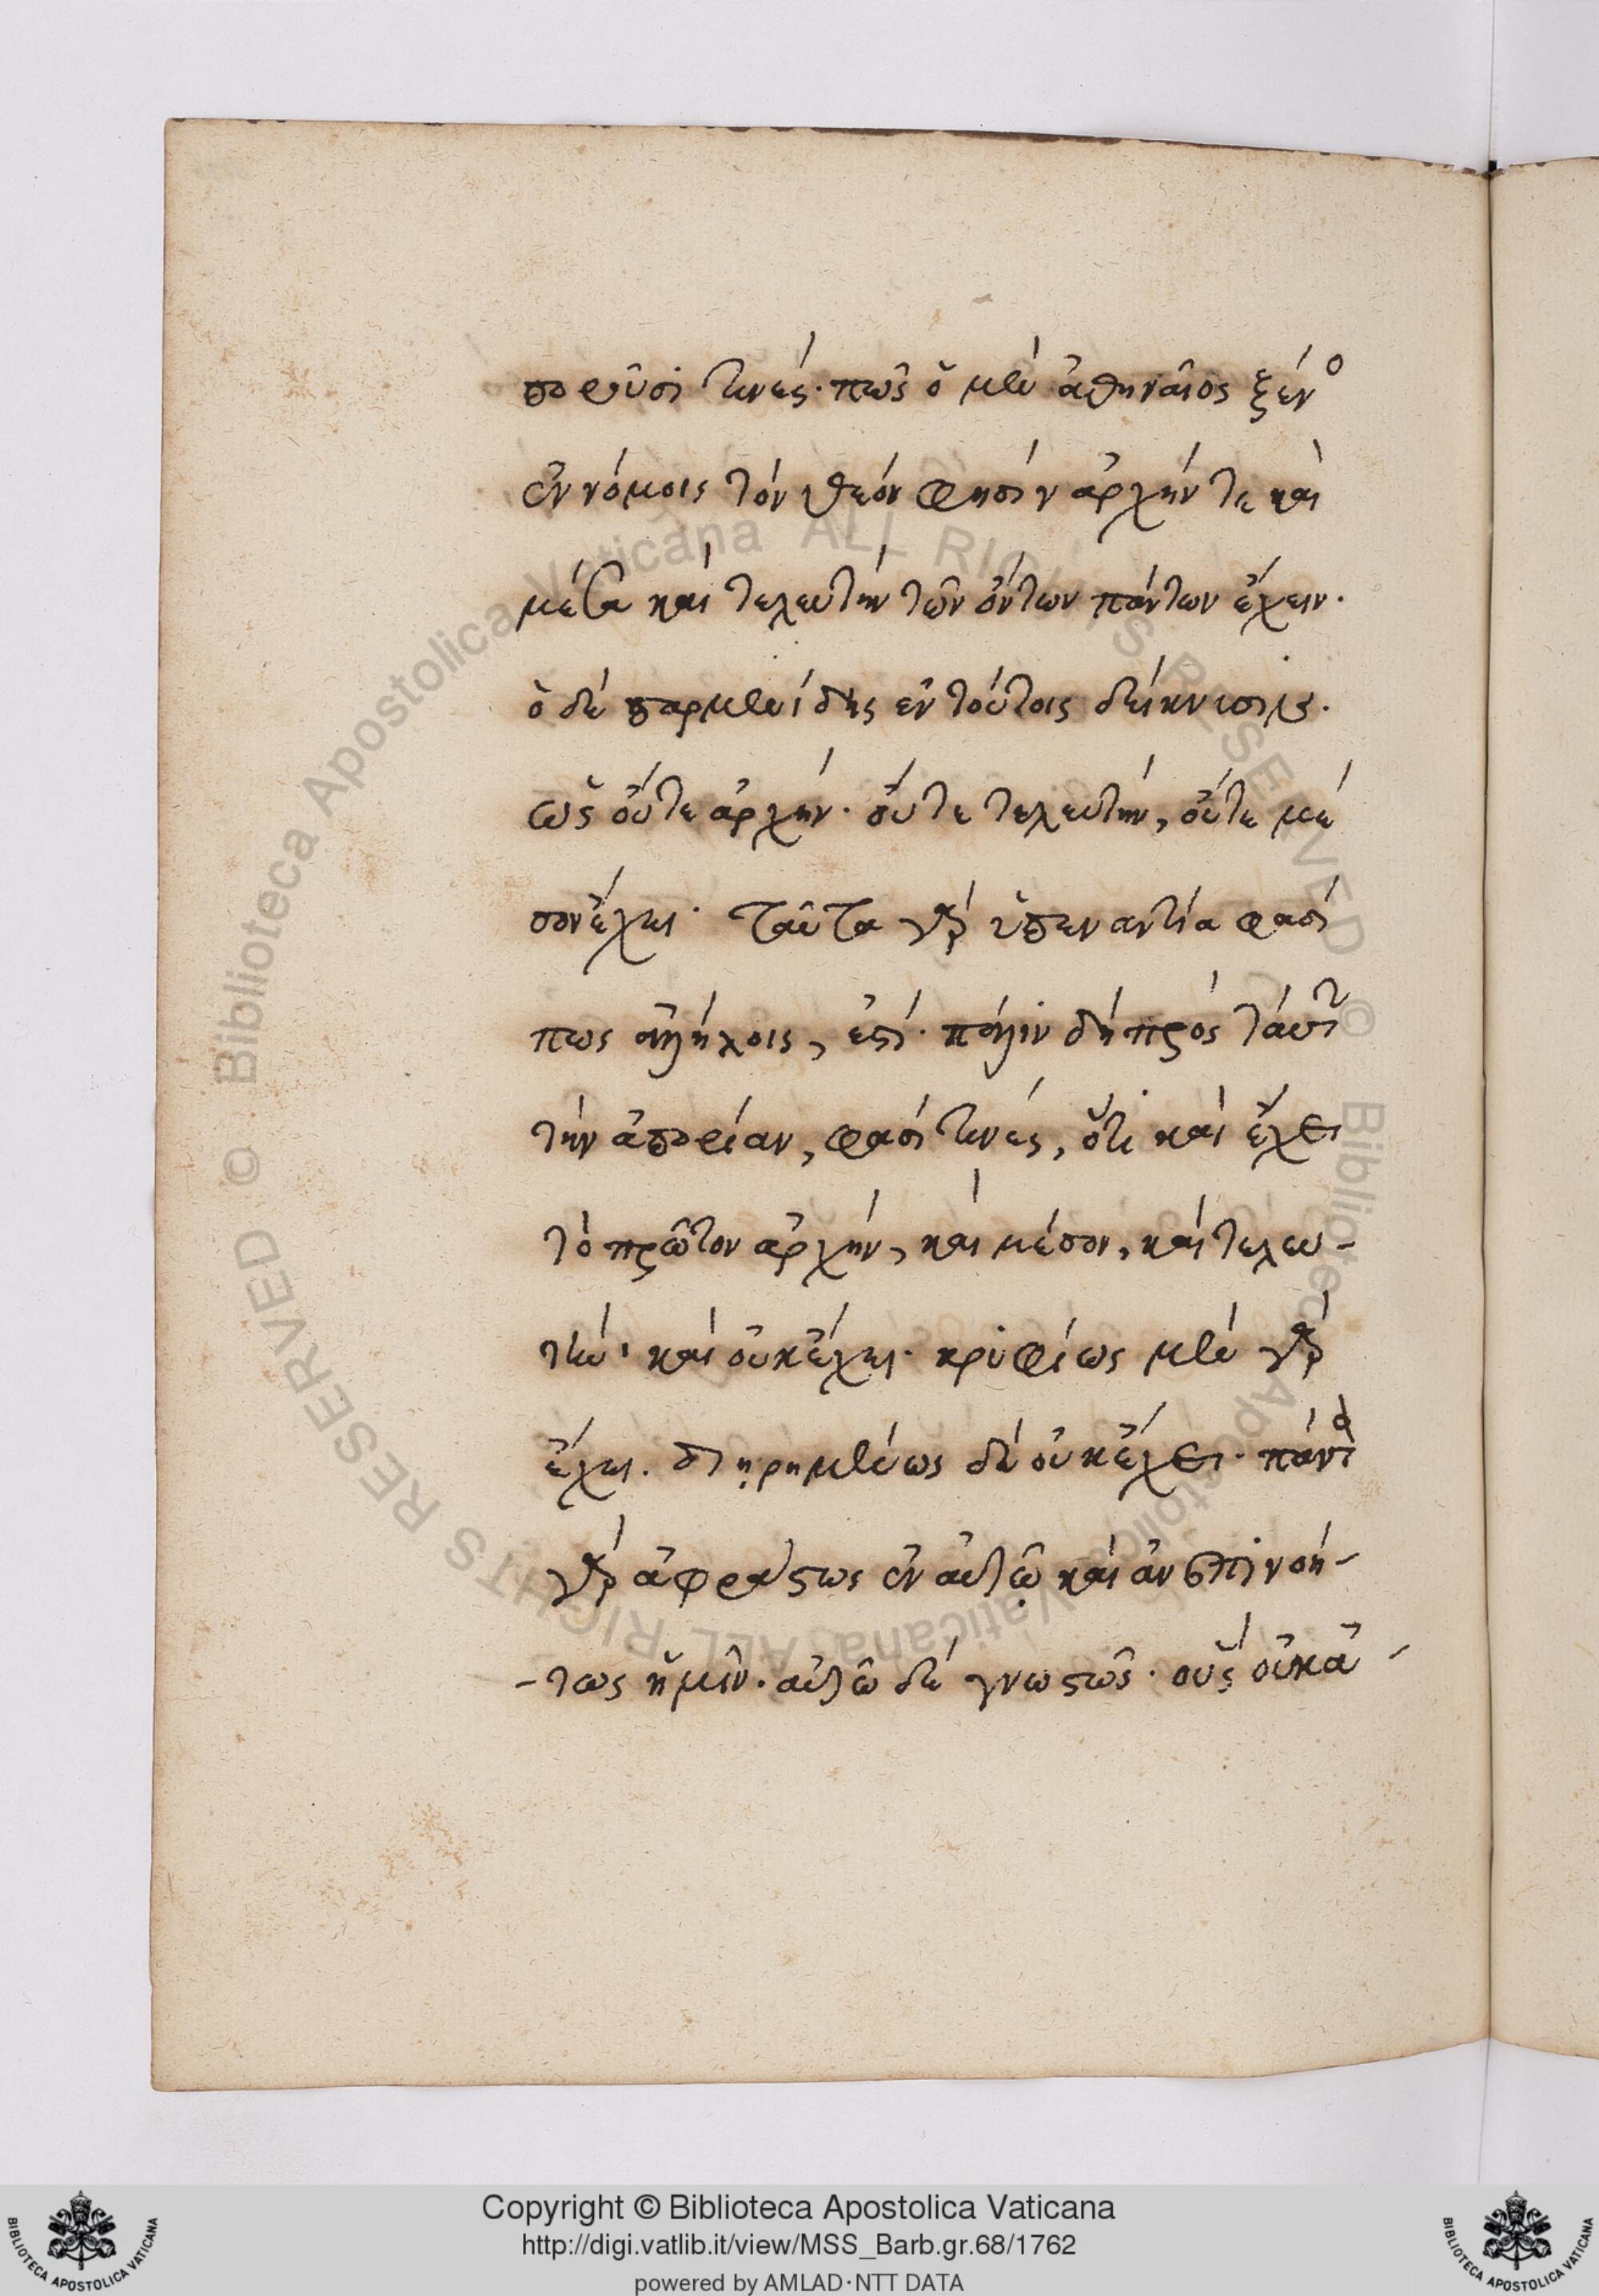 ποροῦσι τινές· πῶς ὁ μὲν ἀθηναῖος ξένο
ἐν νόμοις τὸν θεόν φησιν ἀρχήν τε καὶ
μέσα καὶ τελευτὴν τῶν ὄντων πάντων ἔχειν·
ὁ δὲ παρμενίδης ἐν τούτοις δείκνυσιν·
ὡς οὔτε ἀρχήν· οὔτε τελευτήν, οὔτε μέ
σον ἔχει· ταῦτα γὰρ ὑπεναντία φασί
πως ἀλλήλοις, ἐστί· πάλιν δὴ πρὸς ταύτ
τὴν ἀπορίαν, φασί τινές, ὅτι καὶ ἔχει
τὸ πρῶτον ἀρχήν, καὶ μέσον, καὶ τελευ-
τήν· καὶ οὐκ ἔχει· κρυφίως μὲν γὰρ
ἔχει· διῃρημένως δὲ οὐκ ἔχει· πάντα
γὰρ ἀφράστως ἐν αὐτῷ καὶ ἀνεπινοή-
-τως ἡμῖν· αὐτῶ δὲ γνωστῶς· οὓς οὐκ ἀ-
Copyright © Biblioteca Apostolica Vaticana
http://digi.vatlib.it/view/MSS_Barb.gr.68/1762
powered by AMLAD·NTT DATA
BIBLIOTECA APOSTOLICA VATICANA
BIBLIOTECA APOSTOLICA VATICANA
© Biblioteca Apostolica Vaticana ALL RIGHTS RESERVED © Biblioteca Apostolica Vaticana ALL RIGHTS RESERVED